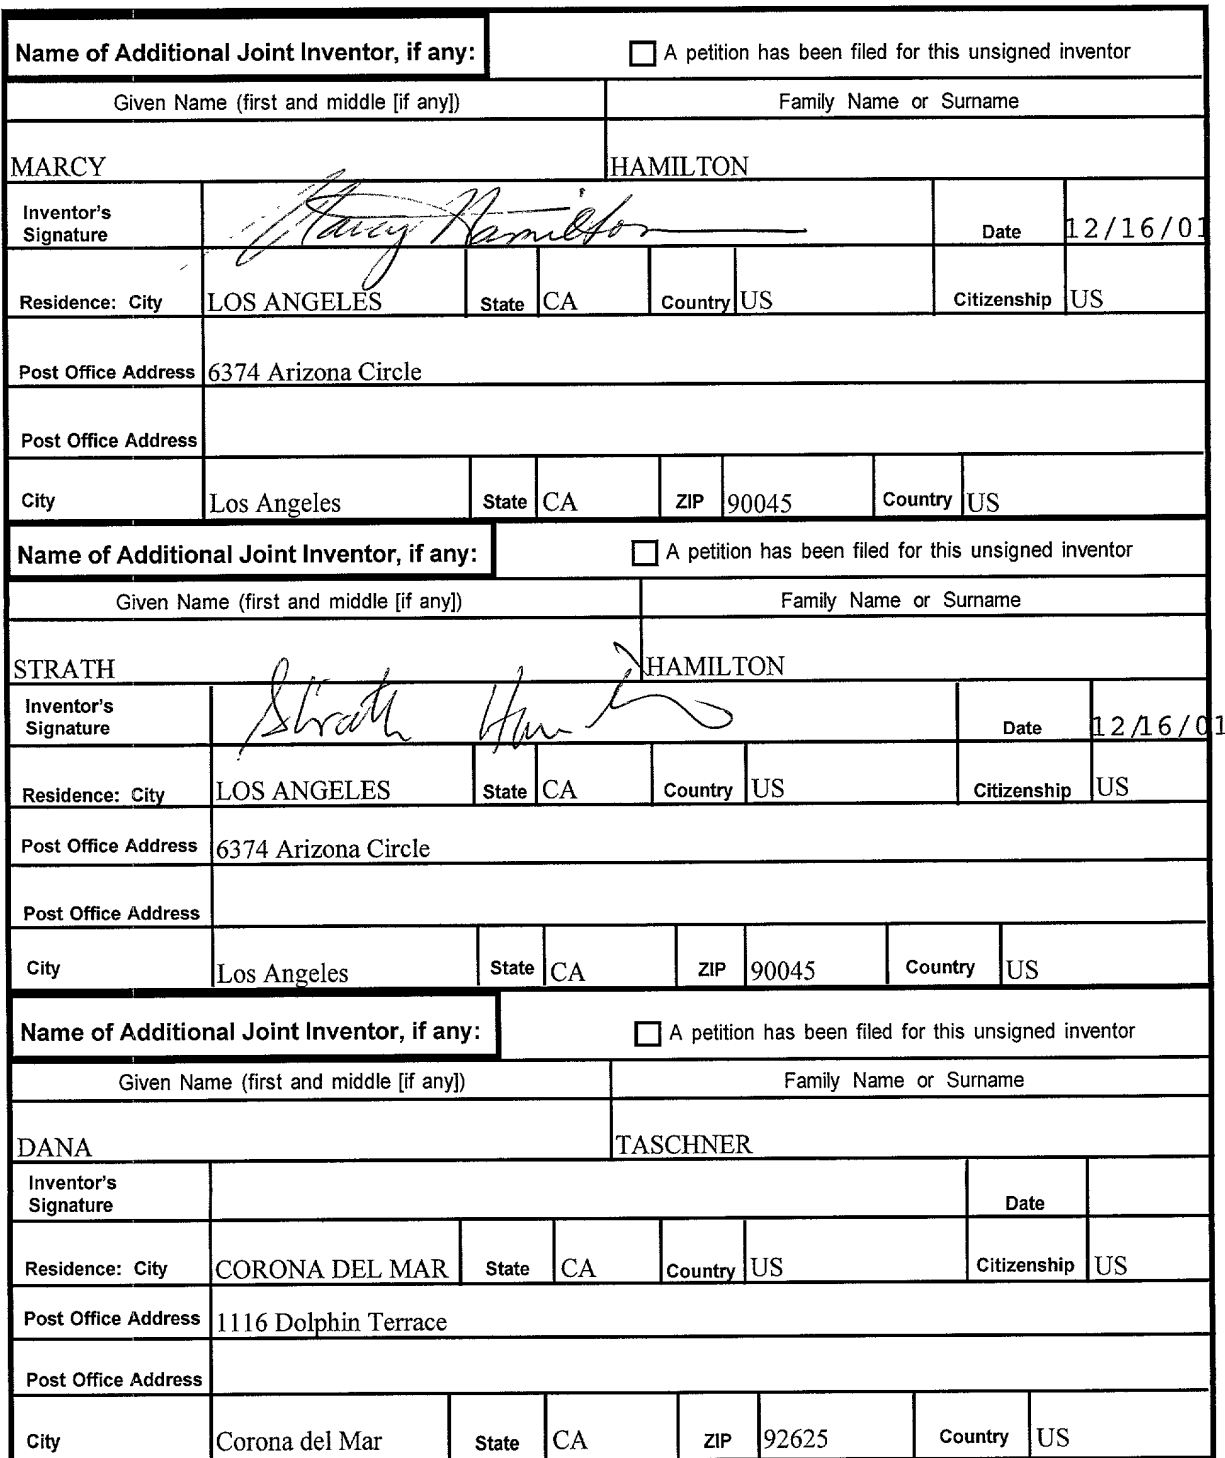 Name of Additional Joint Inventor, if any: A petition has been filed for this unsigned inventor
Given Name (first and middle [if any]) Family Name or Surname
MARCY HAMILTON
Inventor's Signature Marcy Hamilton Date 12/16/01
Residence: City LOS ANGELES State CA Country US Citizenship US
Post Office Address 6374 Arizona Circle
Post Office Address
City Los Angeles State CA ZIP 90045 Country US
Name of Additional Joint Inventor, if any: A petition has been filed for this unsigned inventor
Given Name (first and middle [if any]) Family Name or Surname
STRATH HAMILTON
Inventor's Signature Strath Ham Date 12/16/01
Residence: City LOS ANGELES State CA Country US Citizenship US
Post Office Address 6374 Arizona Circle
Post Office Address
City Los Angeles State CA ZIP 90045 Country US
Name of Additional Joint Inventor, if any: A petition has been filed for this unsigned inventor
Given Name (first and middle [if any]) Family Name or Surname
DANA TASCHNER
Inventor's Signature Date
Residence: City CORONA DEL MAR State CA Country US Citizenship US
Post Office Address 1116 Dolphin Terrace
Post Office Address
City Corona del Mar State CA ZIP 92625 Country US